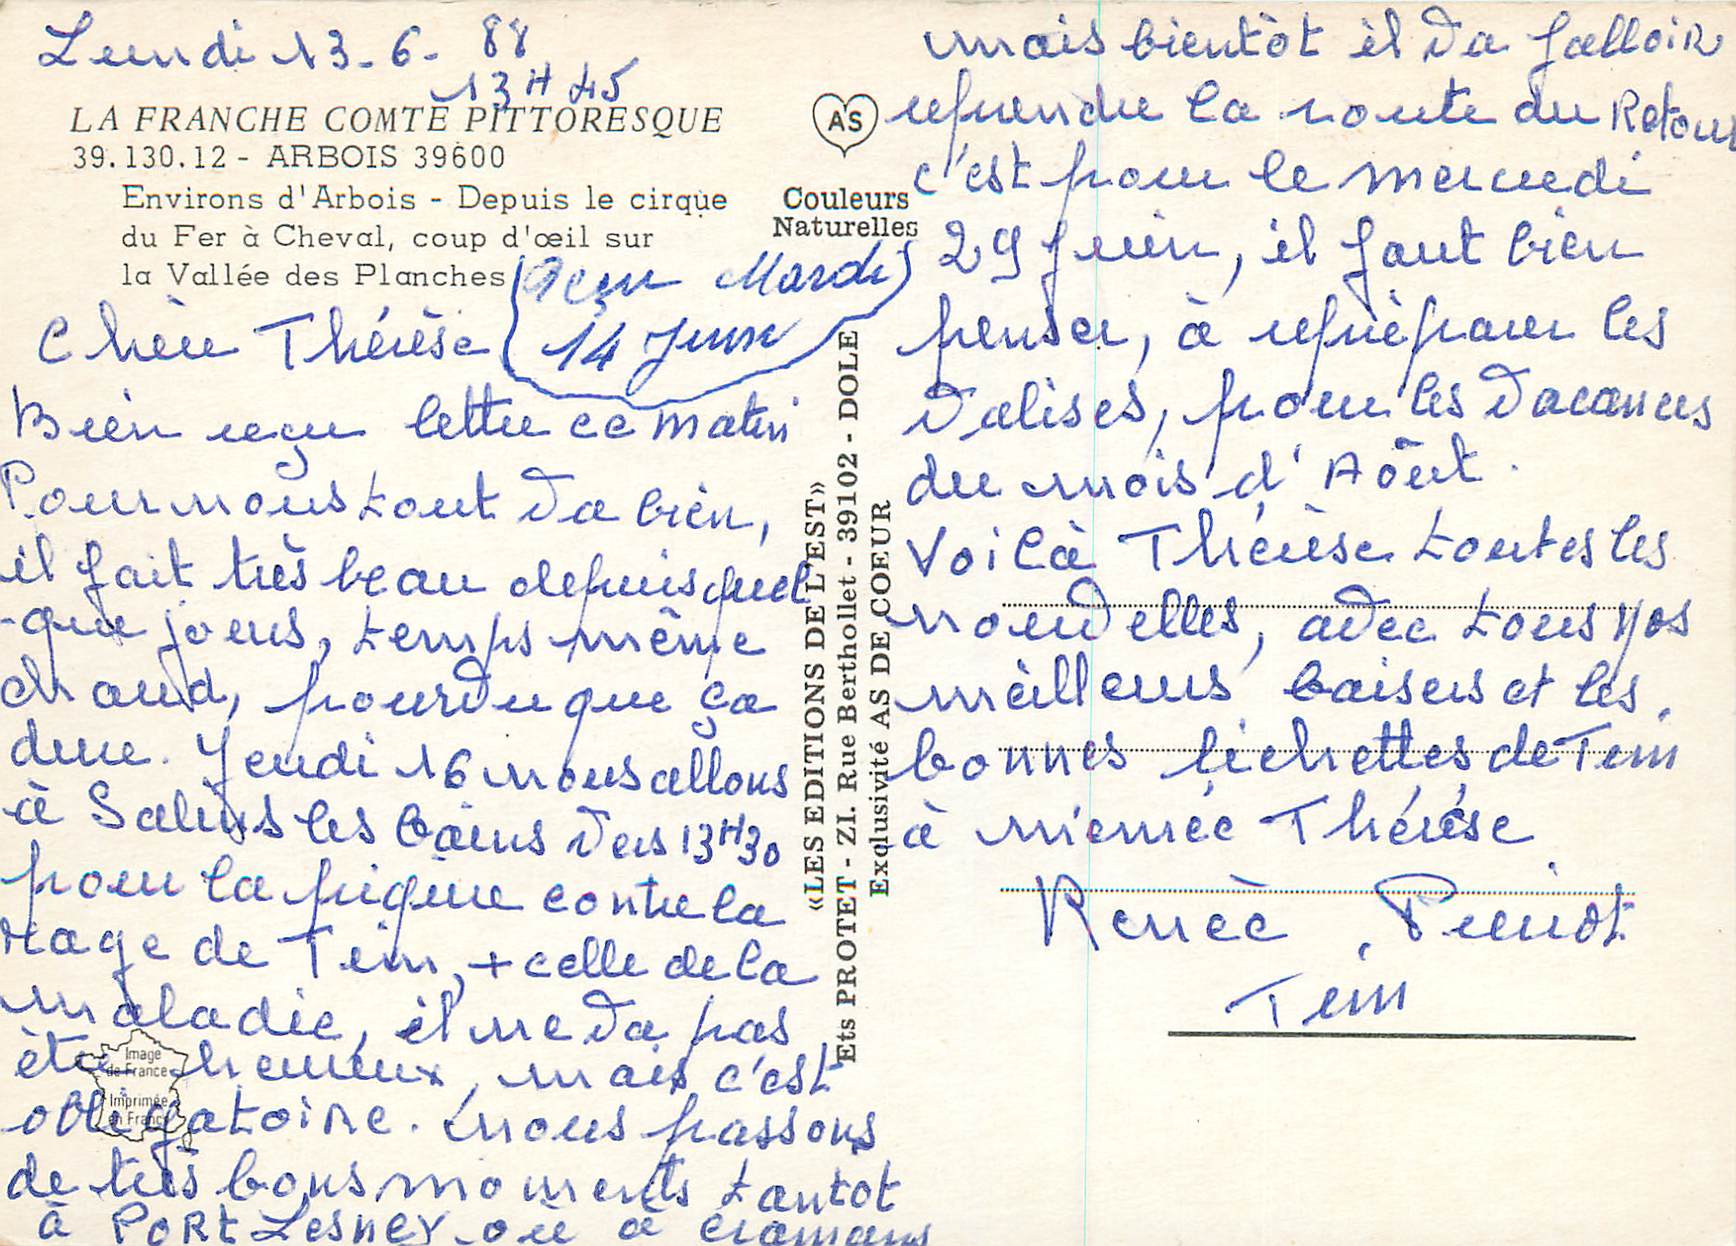 Lundi 13-6-88
13H45
LA FRANCHE COMTÉ PITTORESQUE
39.130.12 - ARBOIS 39600
Environs d'Arbois - Depuis le cirque
du Fer à Cheval, coup d'œil sur
la Vallée des Planches
AS
Couleurs
Naturelles
Reçu Mardi
14 Juin
Chère Thérèse
Bien reçu lettre ce matin
Pour nous tout va bien,
il fait très beau depuis quel
-que jours, temps même
chaud, pourvu que ça
dure. Jeudi 16 nous allons
à Salins les bains vers 13H30
pour la piqure contre la
rage de Tim, + celle de la
maladie, il ne va pas
être heureux, mais c'est
obligatoire. nous passons
de très bons moments tantot
à PORT LESNEY ou à cramans
Image
de France
Imprimée
en France
«LES EDITIONS DE L'EST»
Ets PROTET - ZI. Rue Berthollet - 39102 - DOLE
Exclusivité AS DE COEUR
mais bientôt il va falloir
reprendre la route du Retour
c'est pour le mercredi
29 juin, il faut bien
penser, à repréparer les
valises, pour les vacances
du mois d'Aôut.
Voilà Thérèse toutes les
nouvelles, avec tous nos
meilleurs baisers et les
bonnes lichettes de Tim
à mémée Thérèse
Renée, Pierrot
Tim